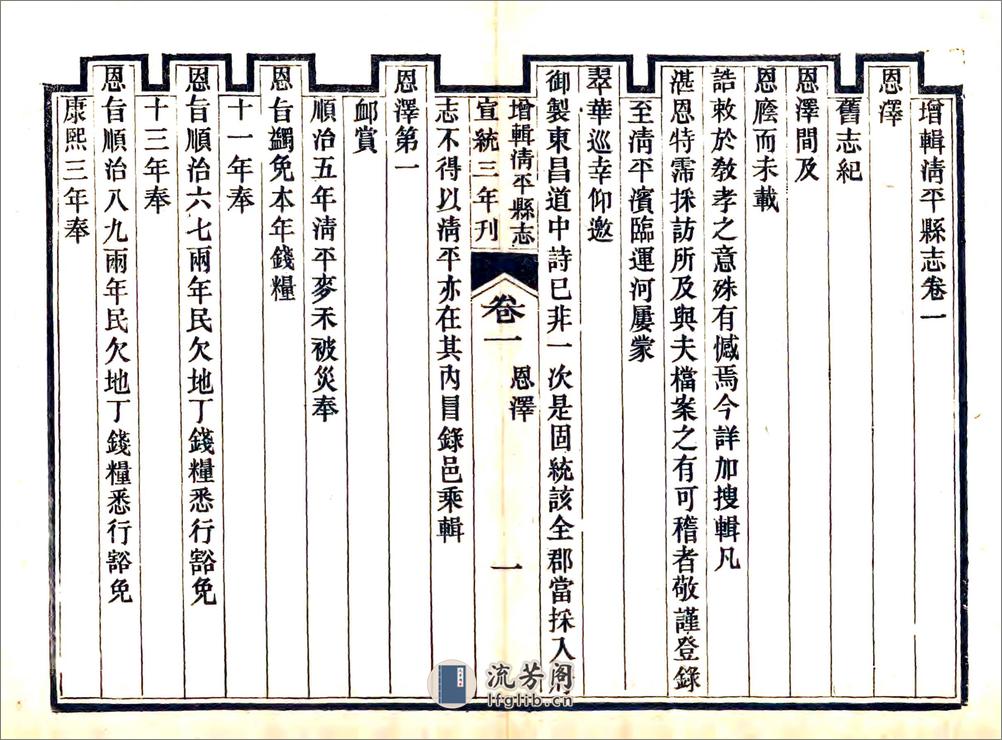 增輯淸平縣志卷一
恩澤
舊志紀
恩澤間及
恩廕而未載
誥敕於敎孝之意殊有憾焉今詳加搜輯凡
湛恩特霈採訪所及與夫檔案之有可稽者敬謹登錄
至淸平濱臨運河屢蒙
翠華巡幸仰邀
御製東昌道中詩已非一次是固統該全郡當採入
增輯淸平縣志
宣統三年刊
卷一
恩澤
一
志不得以淸平亦在其內目錄邑乘輯
恩澤第一
順治五年淸平麥禾被災奉
卹賞
恩旨蠲免本年錢糧
十一年奉
恩旨順治六七兩年民欠地丁錢糧悉行豁免
十三年奉
恩旨順治八九兩年民欠地丁錢糧悉行豁免
康熙三年奉
流芳阁
lfglib.cn